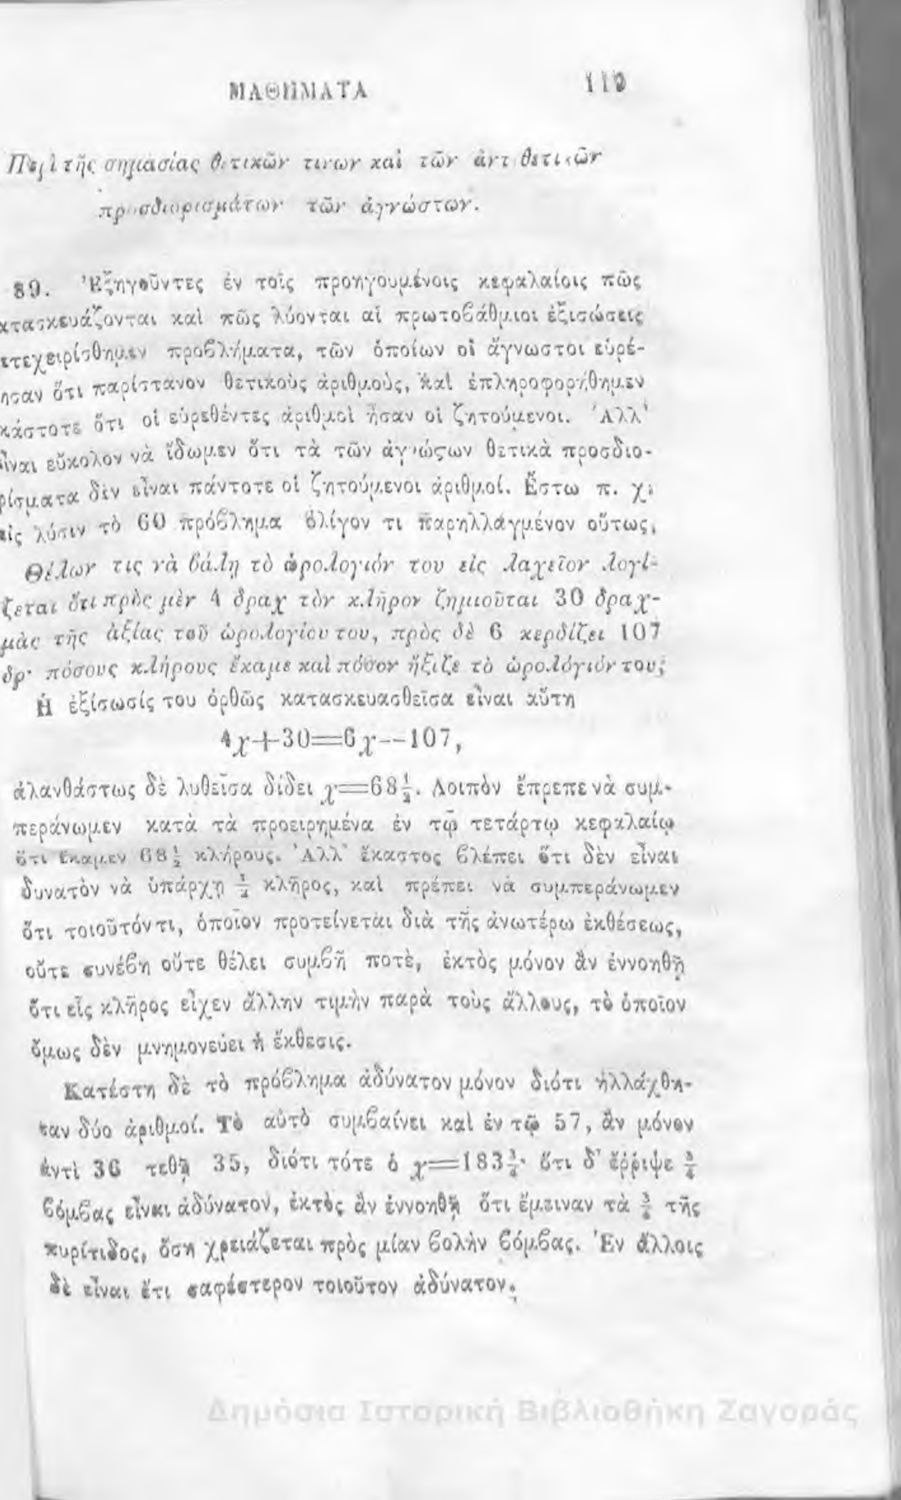 ΜΑΘΗΜΑΤΑ 119
Περὶ τῆς σημασίας θετικῶν τινων καὶ τῶν ἀντιθετικῶν
προσδιορισμάτων τῶν ἀγνώστων.
89. Ἐξηγοῦντες ἐν τοῖς προηγουμένοις κεφαλαίοις πῶς
ατασκευάζονται καὶ πῶς λύονται αἱ πρωτοβάθμιοι ἐξισώσεις
ετεχειρίσθημεν προβλήματα, τῶν ὁποίων οἱ ἄγνωστοι εὑρέ-
ησαν ὅτι παρίστανον θετικοὺς ἀριθμοὺς, καὶ ἐπληροφορήθημεν
κάστοτε ὅτι οἱ εὑρεθέντες ἀριθμοὶ ἦσαν οἱ ζητούμενοι. Ἀλλ'
εἶναι εὔκολον νὰ ἴδωμεν ὅτι τὰ τῶν ἀγνώςων θετικὰ προσδιο-
ρίσματα δὲν εἶναι πάντοτε οἱ ζητούμενοι ἀριθμοί. Ἔστω π. χ.
εἰς λύσιν τὸ 60 πρόβλημα ὀλίγον τι παρηλλαγμένον οὕτως,
Θέλων τις νὰ βάλῃ τὸ ὡρολογιόν του εἰς λαχεῖον λογί-
ζεται ὅτι πρὸς μὲν 4 δραχ τὸν κλῆρον ζημιοῦται 30 δραχ-
μὰς τῆς ἀξίας τοῦ ὡρολογίου του, πρὸς δὲ 6 κερδίζει 107
δρ· πόσους κλήρους ἔκαμε καὶ πόσον ἤξιζε τὸ ὡρολόγιόν του;
Ἡ ἐξίσωσίς του ὀρθῶς κατασκευασθεῖσα εἶναι αὕτη
4χ+30=6χ--107,
ἀλανθάστως δὲ λυθεῖσα δίδει χ=68½. Λοιπὸν ἔπρεπε νὰ συμ-
περάνωμεν κατὰ τὰ προειρημένα ἐν τῷ τετάρτῳ κεφαλαίῳ
ὅτι ἔκαμεν 68½ κλήρους. Ἀλλ' ἕκαστος βλέπει ὅτι δὲν εἶναι
δυνατὸν νὰ ὑπάρχῃ ½ κλῆρος, καὶ πρέπει νὰ συμπεράνωμεν
ὅτι τοιοῦτόν τι, ὁποῖον προτείνεται διὰ τῆς ἀνωτέρω ἐκθέσεως,
οὔτε συνέβη οὔτε θέλει συμβῆ ποτὲ, ἐκτὸς μόνον ἂν ἐννοηθῇ
ὅτι εἷς κλῆρος εἶχεν ἄλλην τιμὴν παρὰ τοὺς ἄλλους, τὸ ὁποῖον
ὅμως δὲν μνημονεύει ἡ ἔκθεσις.
Κατέστη δὲ τὸ πρόβλημα ἀδύνατον μόνον διότι ἠλλάχθη-
σαν δύο ἀριθμοί. Τὸ αὐτὸ συμβαίνει καὶ ἐν τῷ 57, ἂν μόνον
ἀντὶ 36 τεθῇ 35, διότι τότε ὁ χ=183¾· ὅτι δ' ἔῤῥιψε ¾
βόμβας εἶναι ἀδύνατον, ἐκτὸς ἂν ἐννοηθῇ ὅτι ἔμειναν τὰ ¾ τῆς
πυρίτιδος, ὅση χρειάζεται πρὸς μίαν βολὴν βόμβας. Ἐν ἄλλοις
δὲ εἶναι ἔτι σαφέστερον τοιοῦτον ἀδύνατον.
Δημόσια Ιστορική Βιβλιοθήκη Ζαγοράς